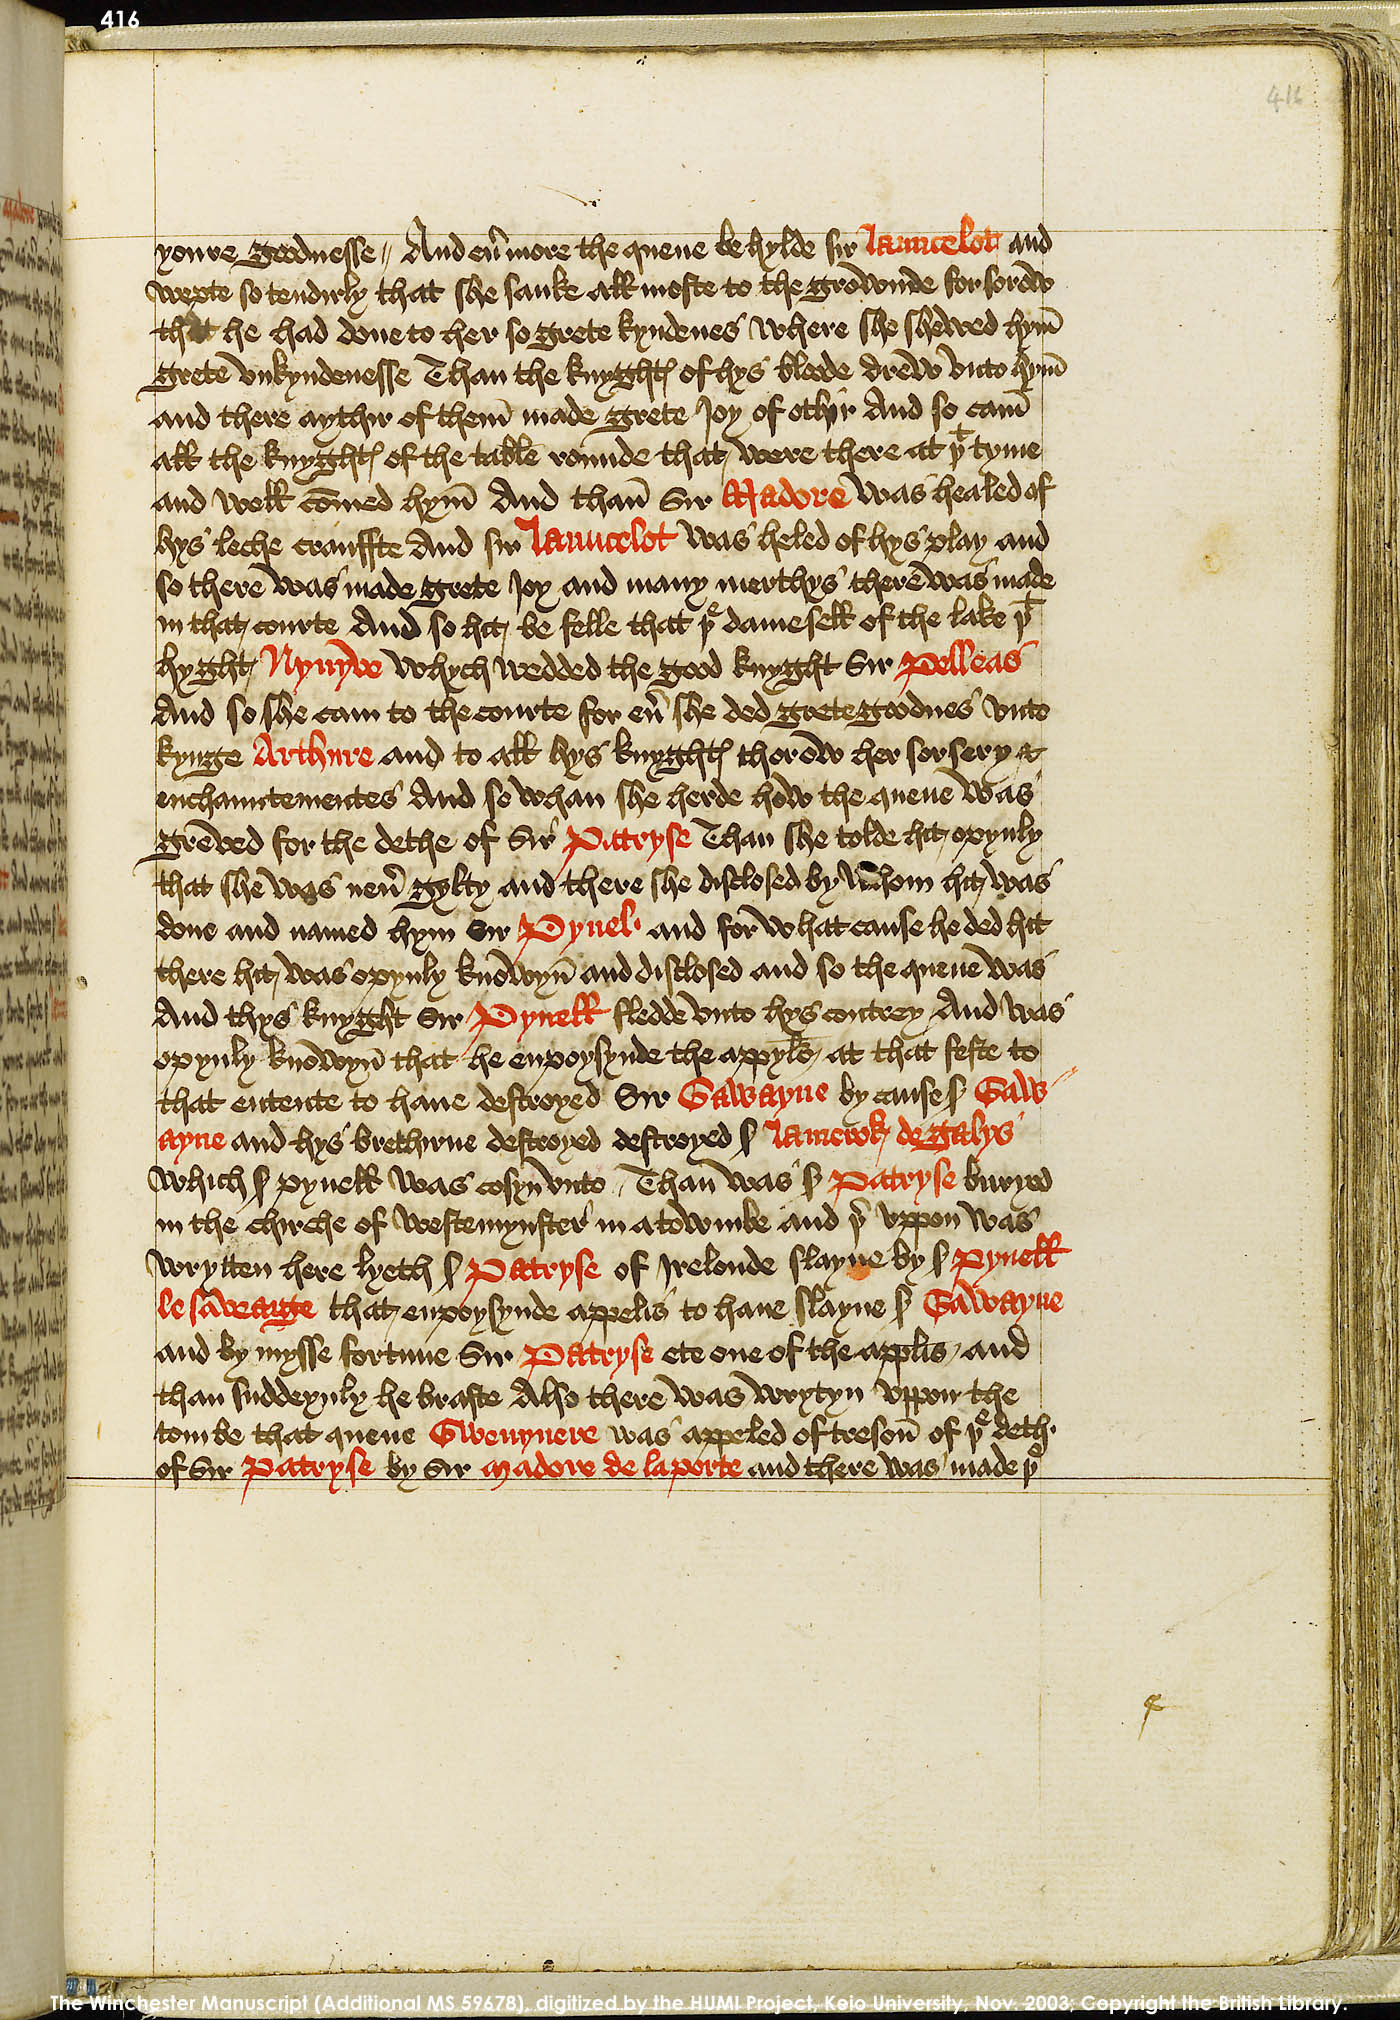 416
416
youre goodnesse // And eu̾more the quene be hylde sir Launcelot and
wepte so tendirly that she sanke all moste to the grownde for sorow
that he had done to her so grete kyndenes where she shewed hym̅
grete vnkyndenesse Than the knyghtꝭ of hys bloode drew vnto hym̅
and there aythir of them̅ made grete Joy of othir And so cam̅
all the knyghtꝭ of the table rounde that were there at þᵗ tyme
and well co̅med hym̅ And than̅ Sir Madore was healed of
hys leche crauffte And sir Launcelot was heled of hys play and
so there was made grete Joy and many merthys there was made
in that courte And so hit be felle that þᵉ damesell of the lake þᵗ
hyght Nynyve whych wedded the good knyght Sir Pelleas
And so she cam to the courte for eu̾ she ded grete goodnes vnto
kynge Arthure and to all hys knyghtꝭ thorow her sorsery &
enchauntementes And so whan she herde how the quene was
greved for the dethe of Sir Patryse Than she tolde hit opynly
that she was neu̾ gylty and there she disclosed by whom hit was
done and named hym Sir Pynel · and for what cause he ded hit
there hit was opynly knowyn̅ and disclosed and so the quene was
And thys knyght Sir Pynell fledde vnto hys contrey And was
opynly knowyn̅ that he enpoysynde the appyls at that feste to
that entente to haue destroyed Sir Gawayne by cause S Gaw
ayne and hys brethirne destroyed destroyed S Lamerok de Galys
which S pynell was cosyn̅ vnto / Than̅ was S Patryse buryed
in the chirche of westemynster in a towmbe and þ̾ vppon was
wrytten here lyeth S Patryse of Irelonde slayne by S Pynell
le saveaige that enpoysynde appelis to haue slayne S Gawayne
and by mysse fortune Sir Patryse ete one of the applis / and
than suddeynly he braste Also there was wrytyn vppon the
tombe that quene Gwenyvere was appeled of treson̅ of þᵉ deth ·
of Sir Patryse by Sir Madore de la porte and there was made þᵉ
The Winchester Manuscript (Additional MS 59678), digitized by the HUMI Project, Keio University, Nov. 2003; Copyright the British Library.